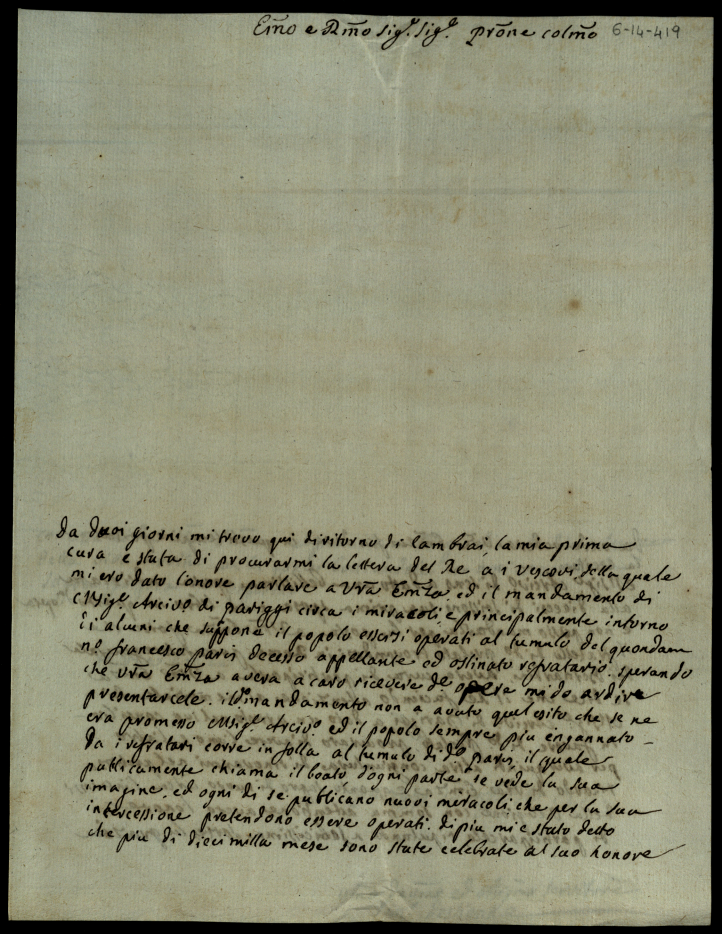 Em̃o e Rm̃o Sig.r Sig.r prõne colm̃o 6-14-419
Da duoi giorni mi trovo qui di ritorno di Cambrai, la mia prima
cura e stata di procurarmi la lettera del Re a i Vescovi della quale
mi ero dato l'onore parlare a Vr̃a Em̃za, ed il mandamento di
Msig.r Arcivo di pariggi circa i miracoli, e principalmente intorno
di alcuni che suppone il popolo essersi operati al tumulo del quondam
no francesco paris decesso appellante ed ostinato refratario. sperando
che vr̃a Em̃za avera a caro ricevere de opere mi do ardire
presentarcele. il do mandamento non a avuto quel esito che se ne
era promesso Msig.r Arcivo. ed il popolo sempre piu engannato
da i refratari corre in folla al tumulo di do paris, il quale
publicamente chiama il beato, d'ogni parte se vede la sua
imagine, ed ogni di se publicano nuovi miracoli che per la sua
intercessione pretendono essere operati. di piu mi e stato detto
che piu di dieci milla mese sono state celebrate al suo honore